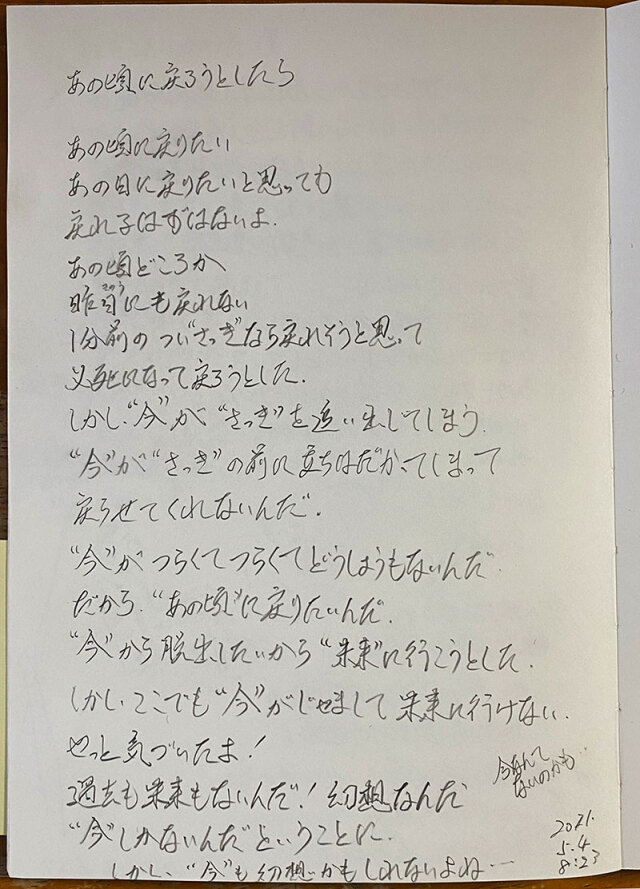 あの頃に戻ろうとしたら
あの頃に戻りたい
あの日に戻りたいと思っても
戻れ子はずはないよ.
あの頃どころか
昨日にも戻れない
きのう
1分前の つい“さっき”なら戻れそうと思って
必死になって戻ろうとした.
しかし、“今”が“さっき”を追い出してしまう.
“今”が“さっき”の前に立ちはだかってしまって
戻らせてくれないんだ.
“今”がつらくてつらくてどうしようもないんだ
だから.“あの頃”に戻りたいんだ.
“今”から脱出したいから“未来”に行こうとした.
しかし ここでも“今”がじゃまして 未来に行けない.
やっと気づいたよ!
過去も未来もないんだ! 幻想なんだ
“今”しかないんだ ということに.
しかし、“今”も幻想かもしれないよね…
今なんて
ないのかも…
2021.
5.4
8:23